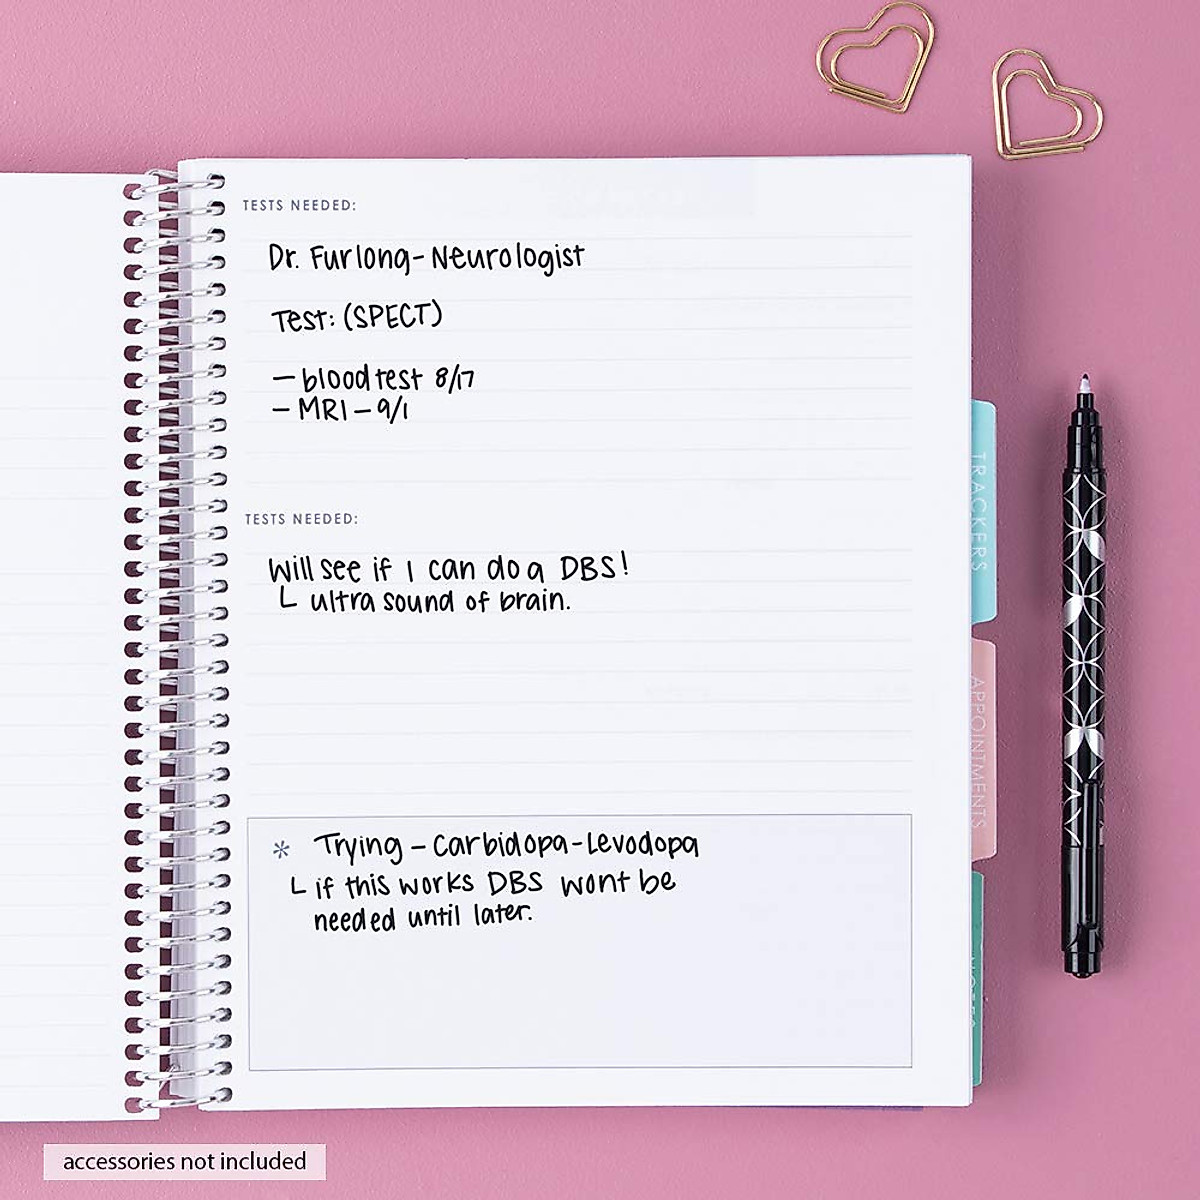 TESTS NEEDED:
Dr. Furlong - Neurologist
Test: (SPECT)
— blood test 8/17
— MRI — 9/1
TESTS NEEDED:
Will see if I can do a DBS!
ultra sound of brain.
* Trying - Carbidopa - Levodopa
if this works DBS wont be
needed until later.
TRACKERS
APPOINTMENTS
NOTES
accessories not included